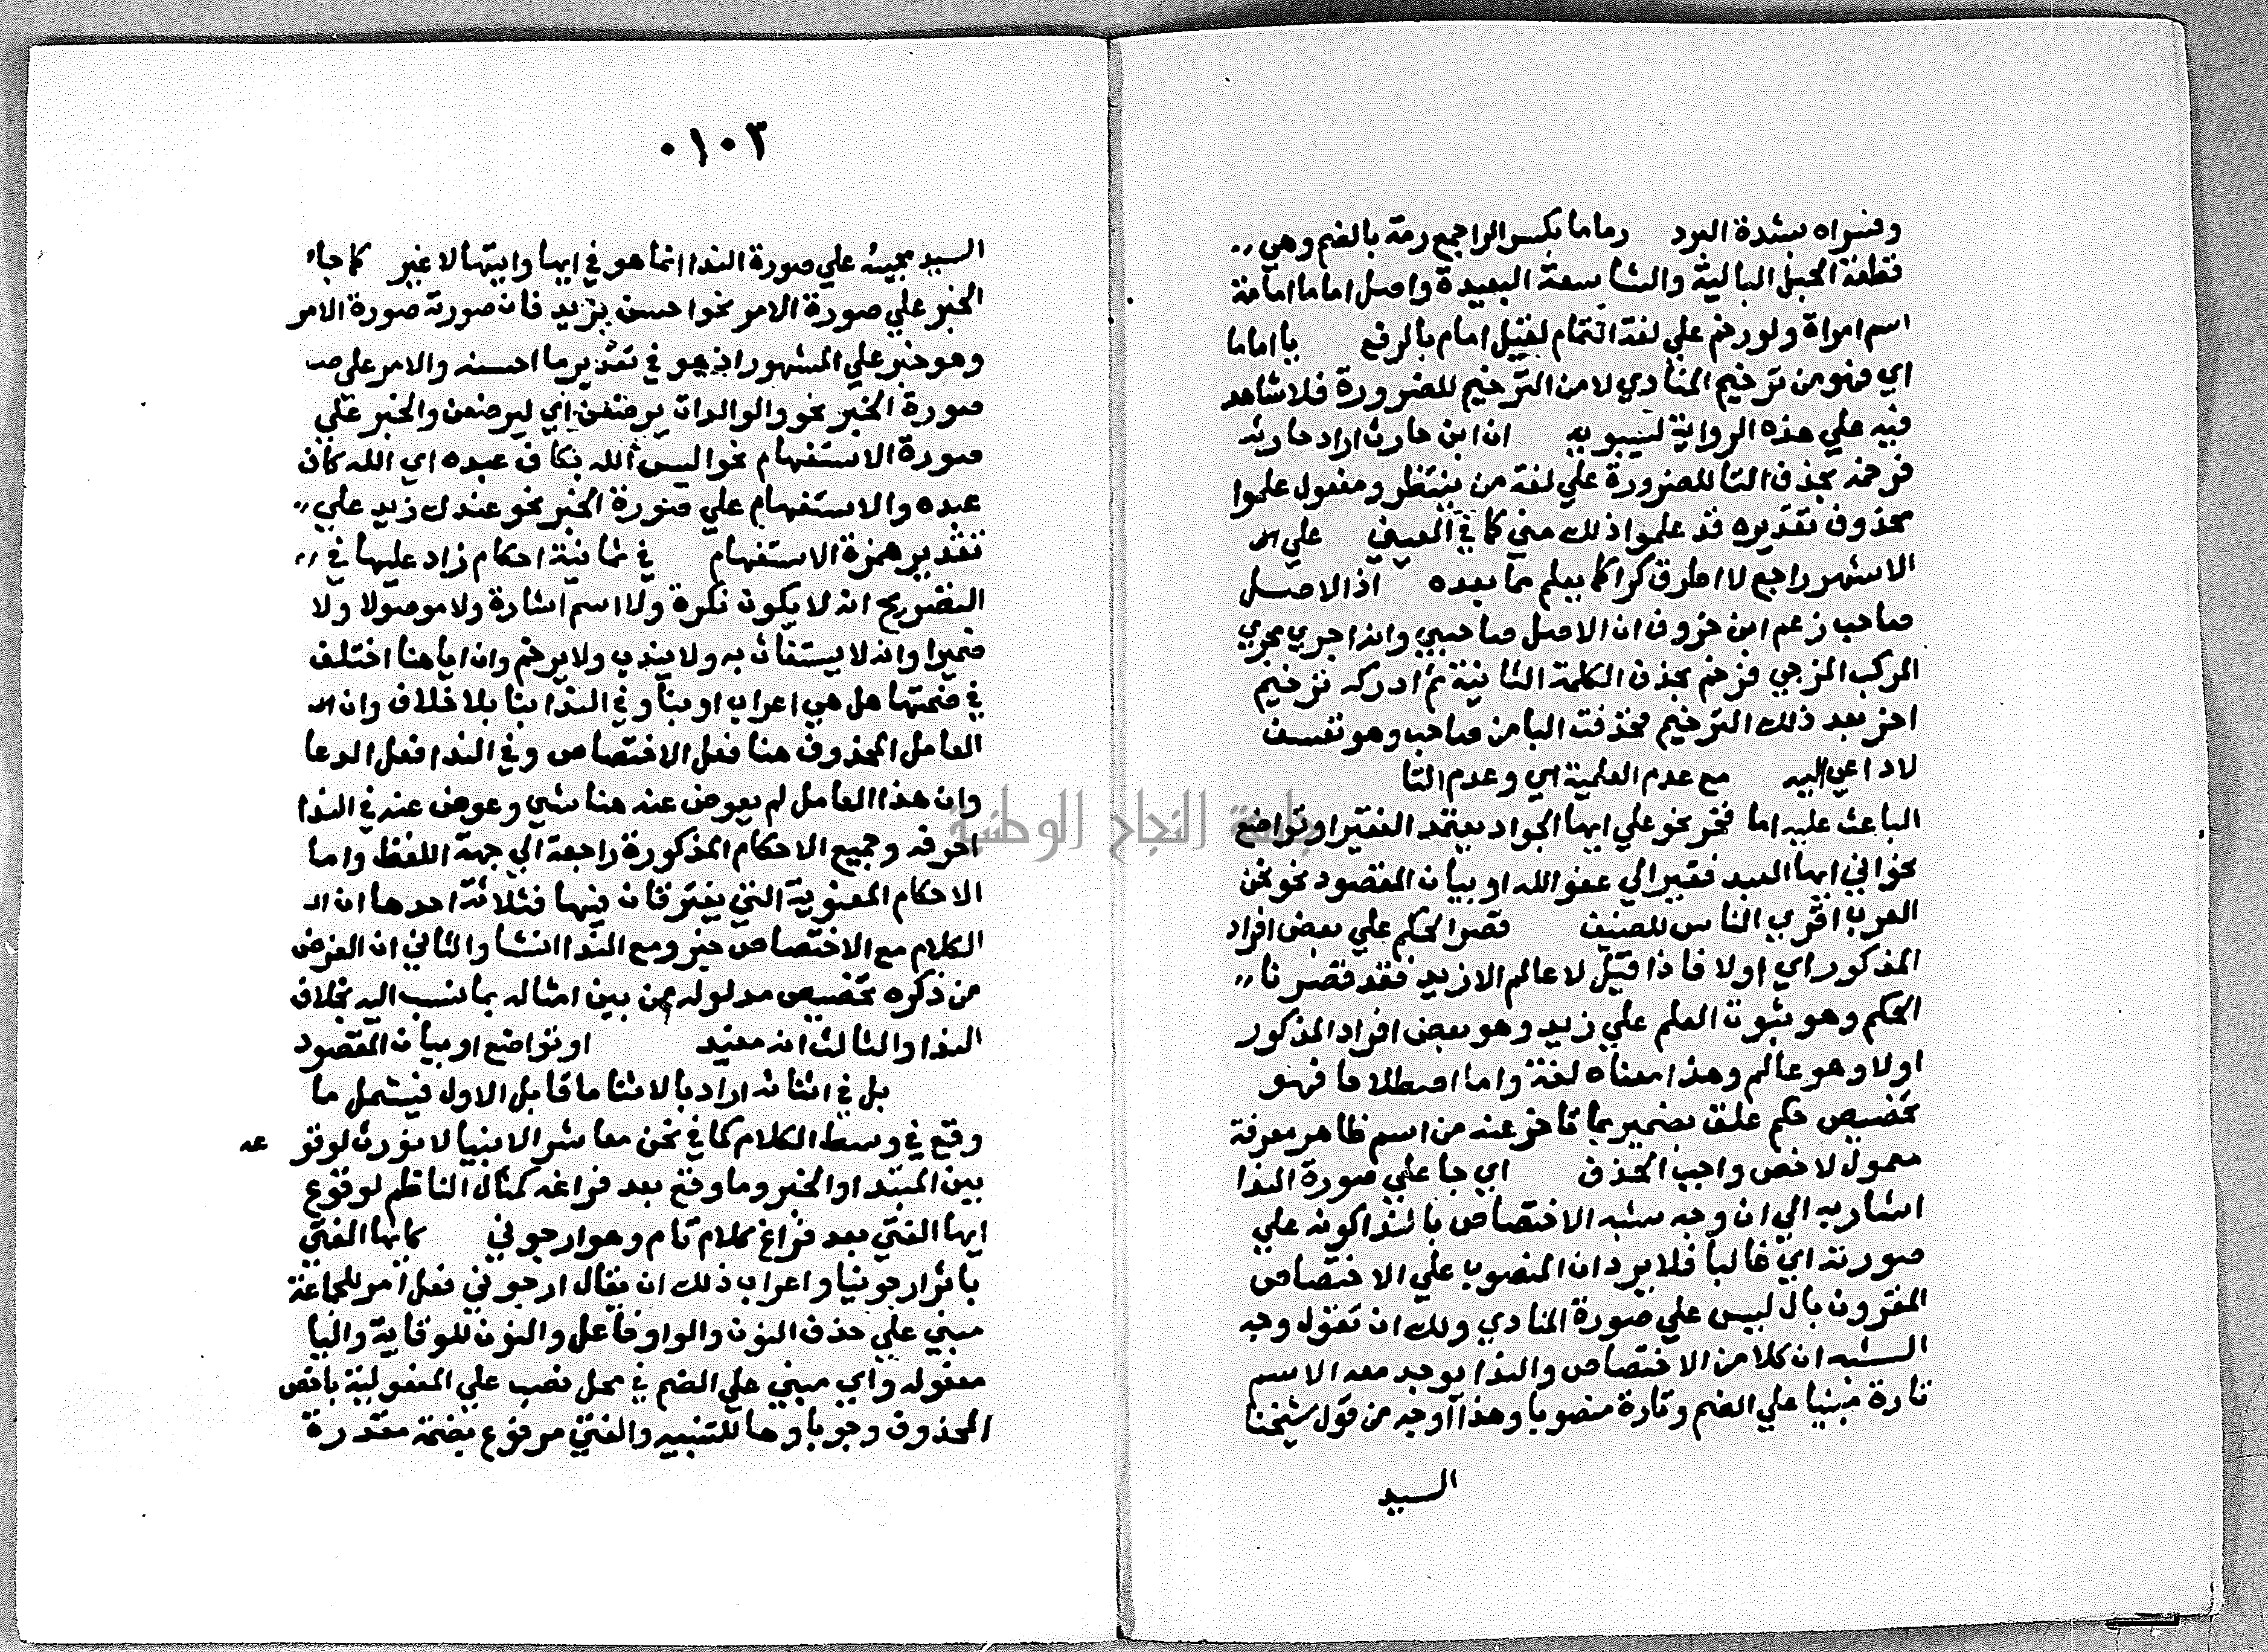 وفسراه بشدة البرد رماما بكسر الراجمع رمة بالضم وهي
قطعة الحبل البالية والشاسعة البعيدة واصل اماما امامة
اسم امراة ولورخم علي لغة التمام لقيل امام بالرفع يا اماما
اي فهو من ترخيم المنادي لا من الترخيم للضرورة فلا شاهد
فيه علي هذه الرواية لسيبويه ان ابن حارث اراد حارثه
فرخمه بحذف التا للضرورة علي لغة من ينتظر ومفعول علموا
محذوف تقديره قد علموا ذلك مني كما في العيني علي الا
الاشهر راجع لا اطرق كرا كما يعلم مما بعده اذ الاصل
صاحب زعم ابن خروف ان الاصل صاحبي وانه اجري مجري
المركب المزجي فرخم بحذف الكلمة الثانية ثم ادركه ترخيم
اخر بعد ذلك الترخيم فحذفت البا من صاحب وهو تعسف
لا داعي اليه مع عدم العلمية اي وعدم التا
الباعث عليه اما فخر نحو علي ايها الجواد يعتمد الفقير او تواضع
نحو اني ايها العبد فقير الي عفو الله او بيان المقصود نحو نحن
العرب اقري الناس للضيف قصر الحكم علي بعض افراد
المذكور اي اولا فاذا قيل لا عالم الا زيد فقد قصرنا
الحكم وهو ثبوت العلم علي زيد وهو بعض افراد المذكور
اولا وهو عالم وهذا معناه لغة واما اصطلاحا فهو
تخصيص حكم علق بضمير بما تاخر عنه من اسم ظاهر معرفة
معمول لاخص واجب الحذف اي جا علي صورة الندا
اشار به الي ان وجه شبه الاختصاص بالندا كونه علي
صورته اي غالبا فلا يرد ان المنصوب علي الاختصاص
المقرون بال ليس علي صورة المنادي ولك ان تقول وجه
الشبه ان كلا من الاختصاص والندا يوجد معه الاسم
تارة مبنيا علي الضم وتارة منصوبا وهذا اوجه من قول شيخنا
السيد
٠١٠٣
السيد مجيئه علي صورة الندا انما هو في ايها وايتها لا غير كما جاء
الخبر علي صورة الامر نحو احسن بزيد فان صورته صورة الامر
وهو خبر علي المشهور اذ هو في تقدير ما احسنه والامر علي صـ
صورة الخبر نحو والوالدات يرضعن اي ليرضعن والخبر علي
صورة الاستفهام نحو اليس الله بكاف عبده اي الله كاف
عبده والاستفهام علي صورة الخبر نحو عندك زيد علي
تقدير همزة الاستفهام في ثمانية احكام زاد عليها في
التصريح انه لا يكون نكرة ولا اسم اشارة ولا موصولا ولا
ضميرا وانه لا يستغاث به ولا يندب ولا يرخم وان ايا هنا اختلف
في ضمتها هل هي اعراب او بنا وفي الندا بنا بلا خلاف وان الا
العامل المحذوف هنا فعل الاختصاص وفي الندا فعل الدعا
وان هذا العامل لم يعوض عنه هنا شي وعوض عنه في الندا
احرفه وجميع الاحكام المذكورة راجعة الي جهة اللفظ واما
الاحكام المعنوية التي يفترقان فيها فثلاثة احدها ان الـ
الكلام مع الاختصاص خبر ومع الندا انشا والثاني ان الغرض
من ذكره تخصيص مدلوله من بين امثاله بما نسب اليه بخلاف
الندا والثالث انه مفيد او تواضع او بيان المقصود
بل في اثنائه اراد بالاثنا ما قابل الاول فيشمل ما
وقع في وسط الكلام كما في نحن معاشر الانبيا لا نورث لوقو عه
بين المبتدا والخبر وما وقع بعد فراغه كمثال الناظم لوقوع
ايها الفتي بعد فراغ كلام تام وهو ارجوني كايها الفتي
باثر ارجونيا واعراب ذلك ان يقال ارجوني فعل امر للجماعة
مبني علي حذف النون والواو فاعل والنون للوقاية واليا
مفعوله واي مبني علي الضم في محل نصب علي المفعولية باخص
المحذوف وجوبا وها للتنبيه والفتي مرفوع بضمة مقدرة
جامعة النجاح الوطنية